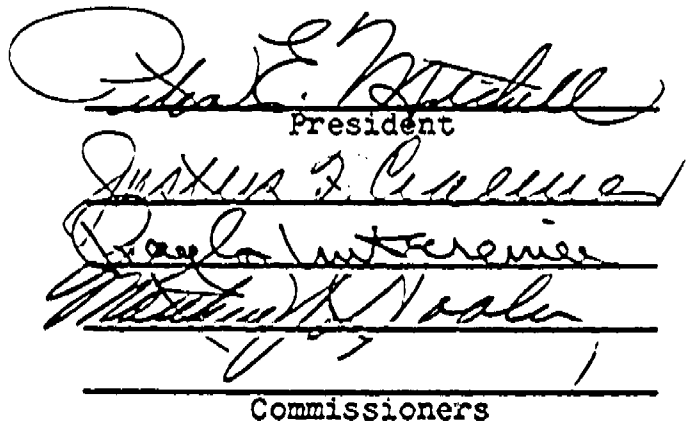 Peter E. Mitchell
President
Justus F. Craemer
Untereiner
Matthew J. Dooley
Commissioners